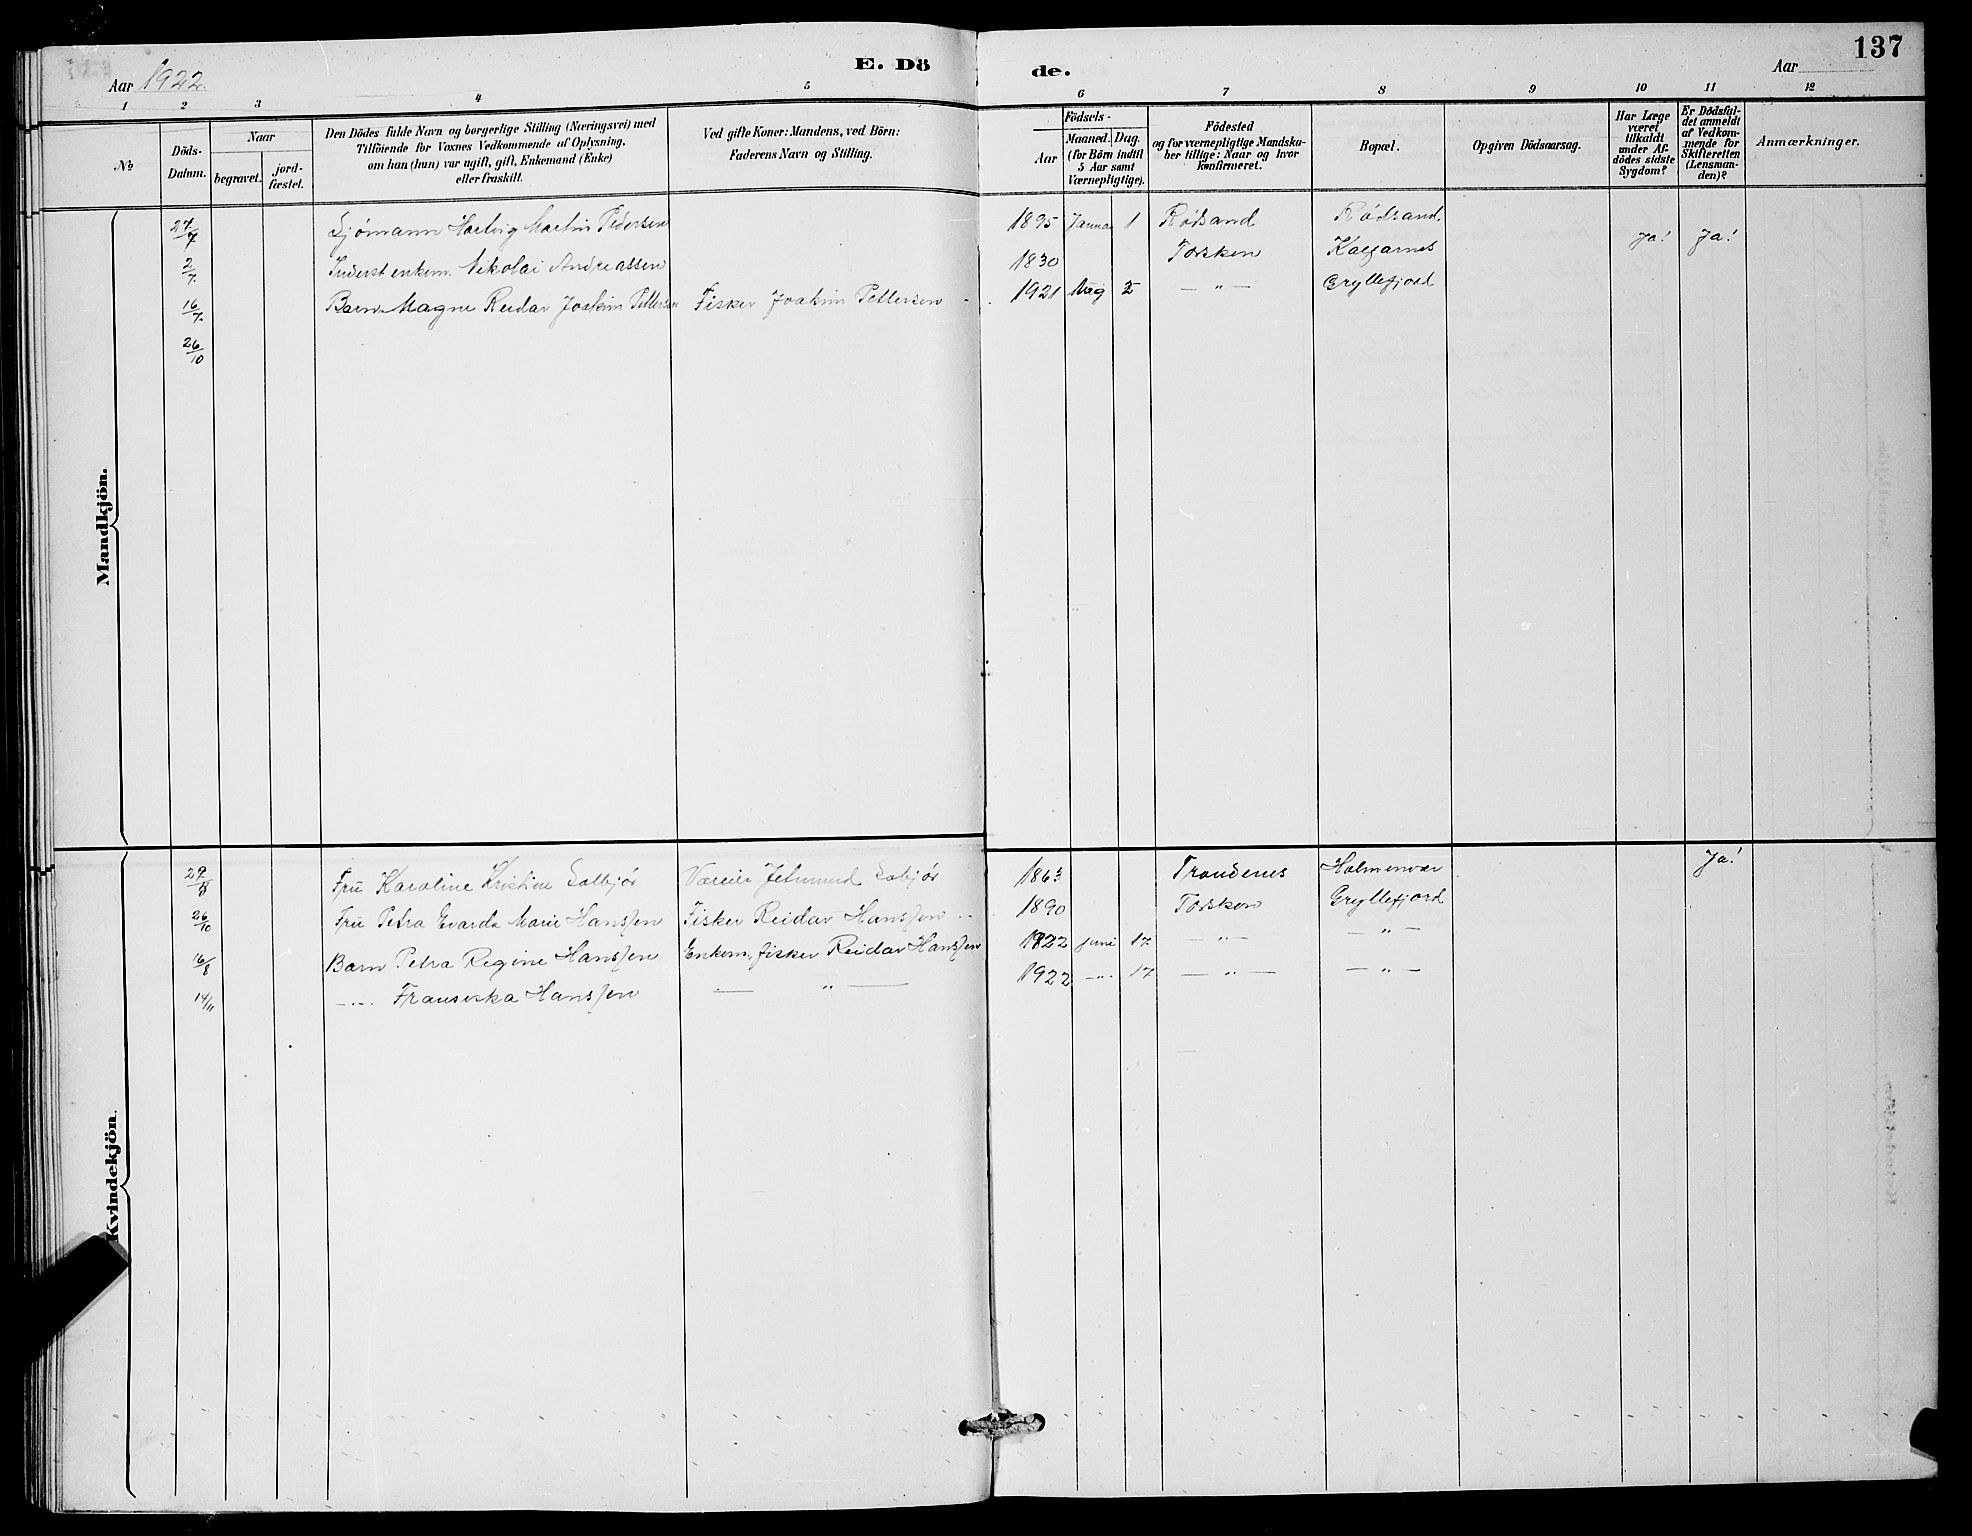 Aar 1922.
E. Dö
de.
Aar
137
1 2 3 4 5 6 7 8 9 10 11 12
No
Döds-
Datum.
Naar
begravet.
jord-
fæstet.
Den Dödes fulde Navn og borgerlige Stilling (Næringsvei) med
Tilföiende for Voxnes Vedkommende af Oplysning,
om han (hun) var ugift, gift, Enkemand (Enke)
eller fraskilt.
Ved gifte Koner: Mandens, ved Börn:
Faderens Navn og Stilling.
Födsels-
Aar
Maaned.
Dag.
(for Börn indtil
5 Aar samt
Værnepligtige).
Födested
og for værnepligtige Mandska-
ber tillige: Naar og hvor
konfirmeret.
Bopæl.
Opgiven Dödsaarsag.
Har Læge
været
tilkaldt
under Af-
dödes sidste
Sygdom?
Er Dödsfal-
det anmeldt
af Vedkom-
mende for
Skifteretten
(Lensman-
den)?
Anmærkninger.
Mandkjön.
27/7 Sjømann Hartvig Martin Pedersen 1895 Januar 1 Rødsand Rødsand. Ja! Ja!
2/7. Inderst enkem. Nikolai Andreassen 1830 Torsken
16/7. Barn Magne Reidar Joakim Pettersen Fisker Joakim Pettersen - 1921 2 — " — Gryllefjord
26/10
Kvindekjön.
29/8 Fru Karoline Kristine Solbjør Væreier 1863 Trondenes Holmenvær Ja!
26/10 Fru Petra Evarda Marie Hanssen Fisker Reidar Hanssen -- 1890 Torsken Gryllefjord
16/8 Barn Petra Regine Hanssen Enkem. fisker Reidar Hanssen 1922 juni 17 — " — — " —
14/11 —"— Fransiska Hanssen — " — 1922 —"— 17 — " — — " —